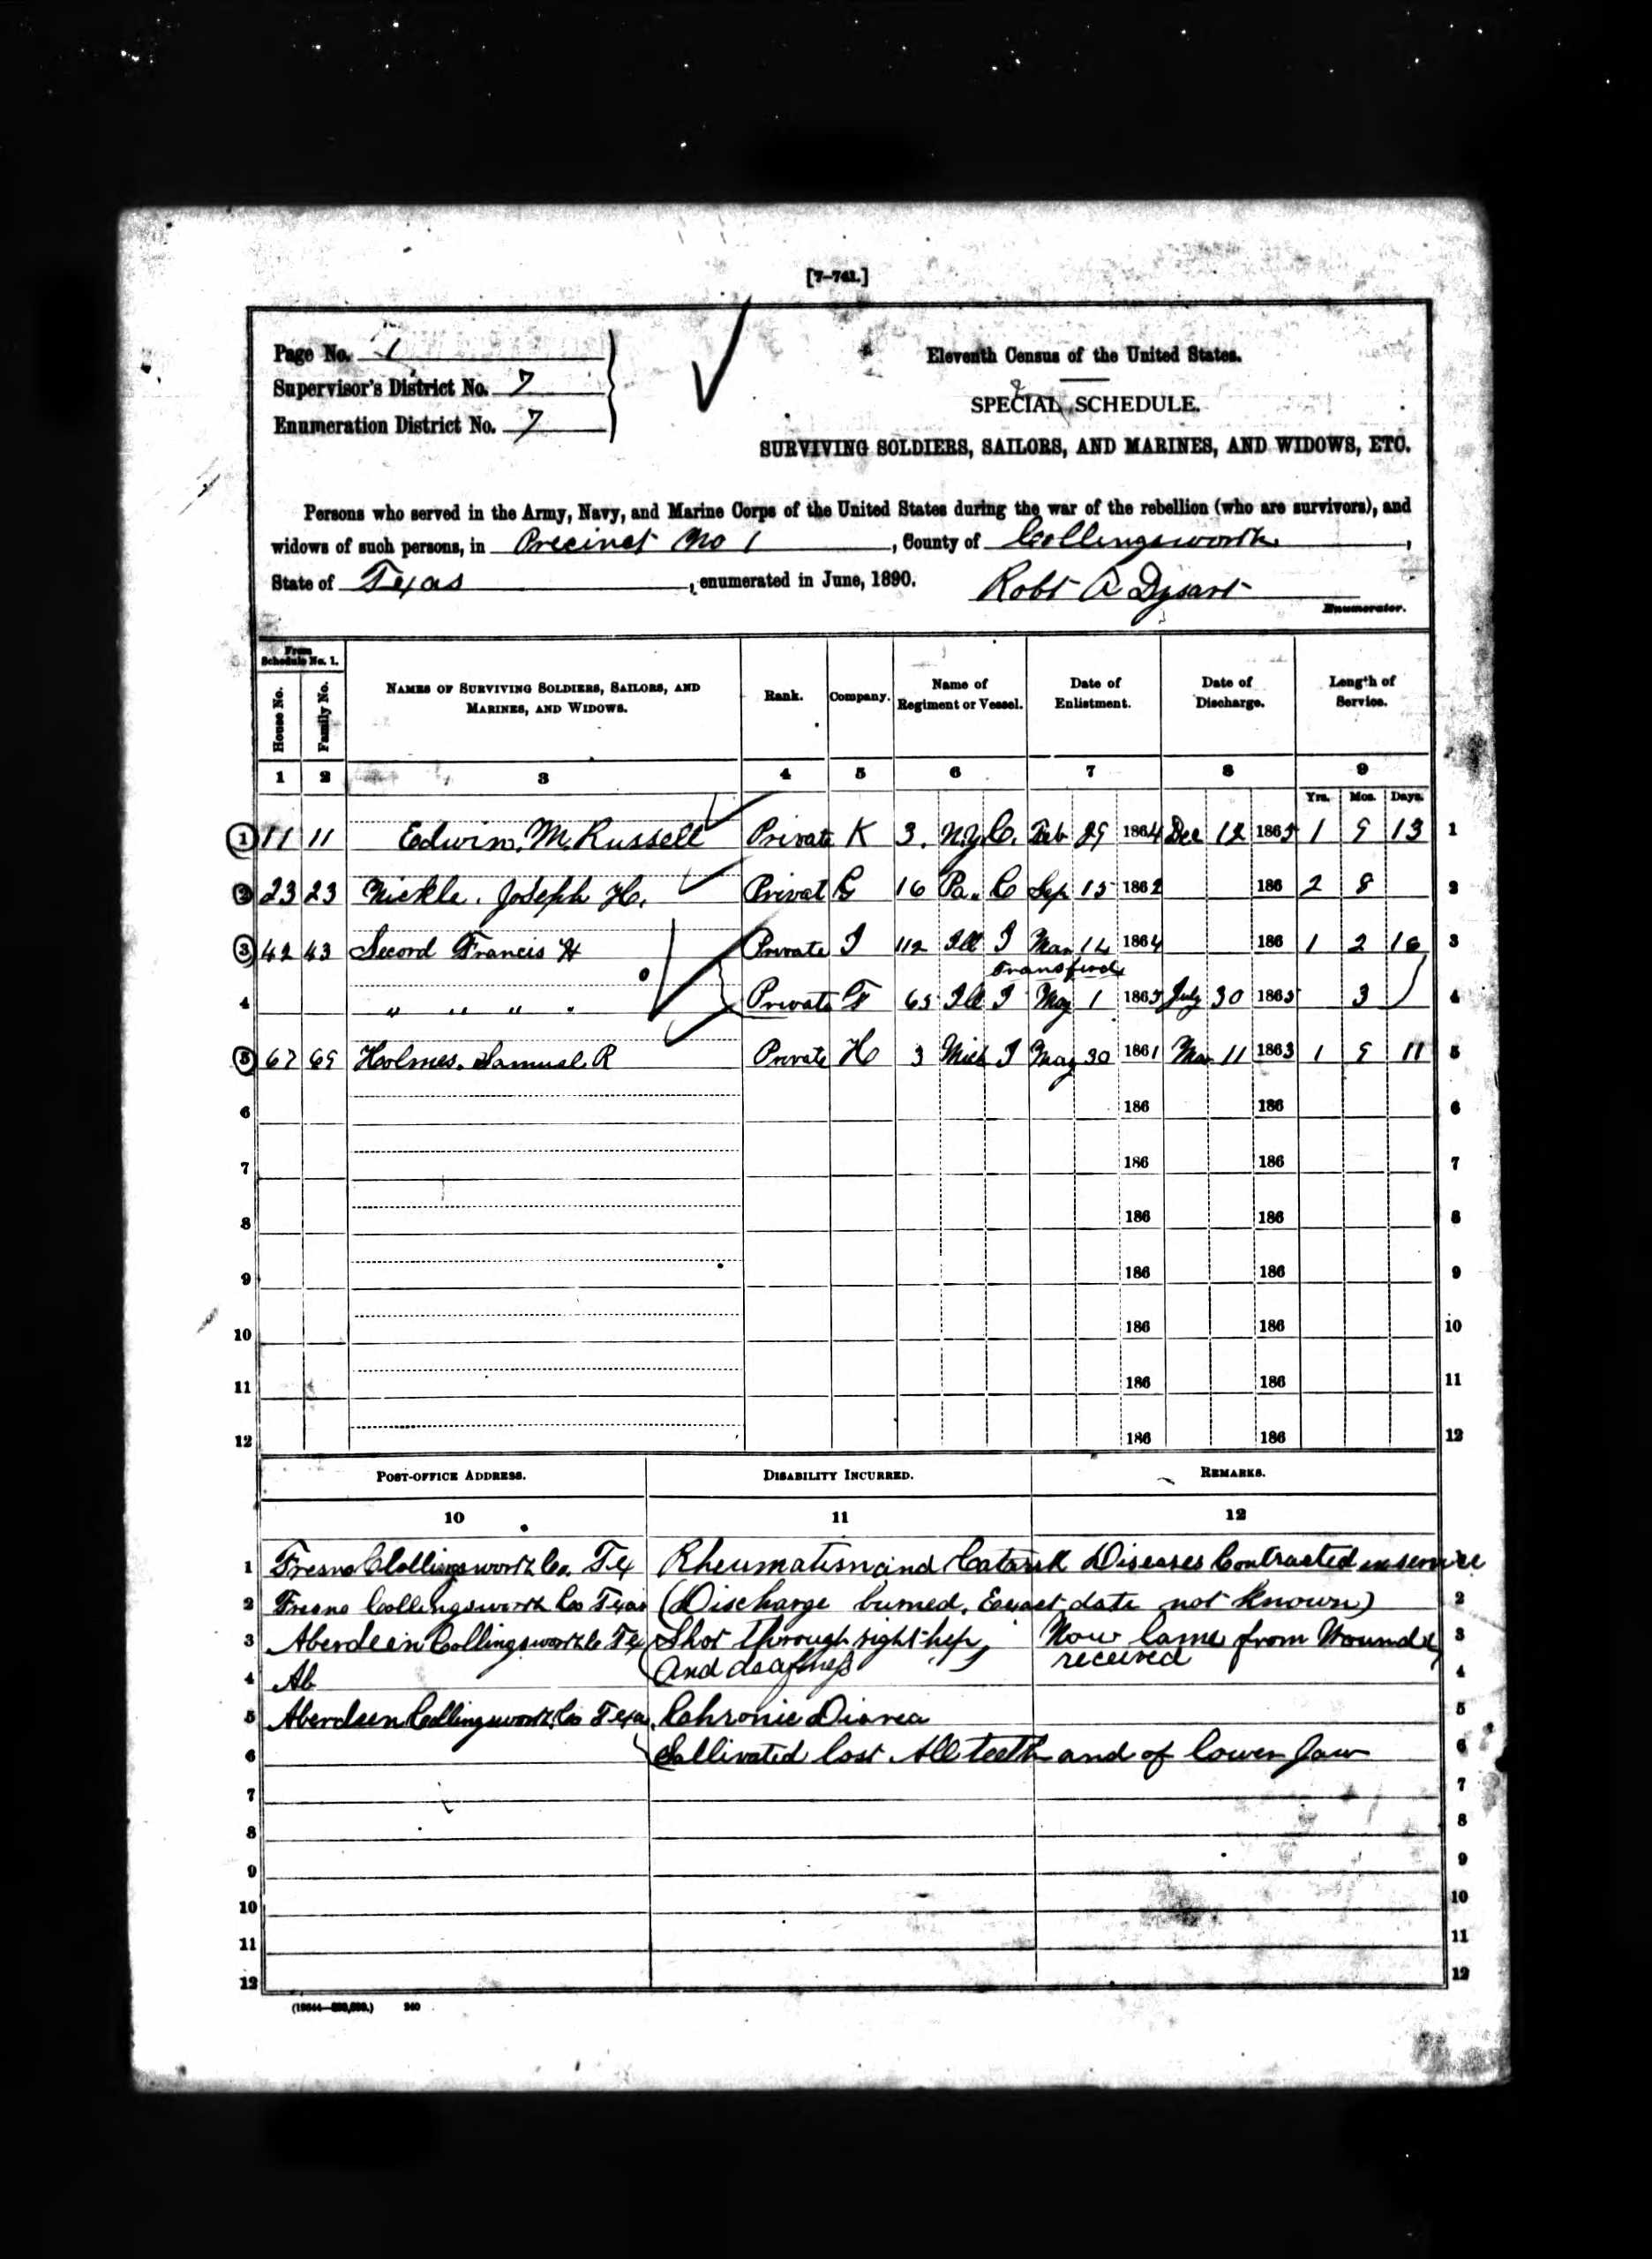 [7-741.]
Page No. 1
Supervisor's District No. 7
Enumeration District No. 7
Eleventh Census of the United States.
SPECIAL SCHEDULE.
SURVIVING SOLDIERS, SAILORS, AND MARINES, AND WIDOWS, ETC.
Persons who served in the Army, Navy, and Marine Corps of the United States during the war of the rebellion (who are survivors), and
widows of such persons, in Precinct No 1, County of Collingsworth,
State of Texas, enumerated in June, 1890. Robt A Dysart
Enumerator.
From Schedule No. 1.
House No. Family No. Names of Surviving Soldiers, Sailors, and Marines, and Widows. Rank. Company. Name of Regiment or Vessel. Date of Enlistment. Date of Discharge. Length of Service.
1 2 3 4 5 6 7 8 9
Yrs. Mos. Days.
1 11 11 Edwin. M. Russell Private K 3. N.Y. C. Feb 29 1864 Dec 12 1865 1 9 13 1
2 23 23 Nickle. Joseph H. Privat G 16 Pa. C Sep 15 1862 186 2 8 2
3 42 43 Secord Francis H Private I 112 Ill I Mar 14 1864 186 1 2 16 3
transfird
4 " " " " Private F 65 Ill I May 1 1865 July 30 1865 3 4
5 67 69 Holmes. Samuel. R Private H 3 Mich I May 30 1861 Mar 11 1863 1 9 11 5
6 186 186 6
7 186 186 7
8 186 186 8
9 186 186 9
10 186 186 10
11 186 186 11
12 186 186 12
Post-office Address. Disability Incurred. Remarks.
10 11 12
1 Fresno Collingsworth Co. Tex Rheumatism and Catarrh Diseases Contracted in service
2 Fresno Collingsworth Co Texas (Discharge burned, Exact date not Known) 2
3 Aberdeen Collingsworth Co Tex Shot through right hip, Now lame from Wounds 3
and deafness received
4 Ab 4
5 Aberdeen Collingsworth Co Texas. Cahronic Diarea 5
6 Sallivated lost All teeth and of lower Jaw 6
7 7
8 8
9 9
10 10
11 11
12 12
240